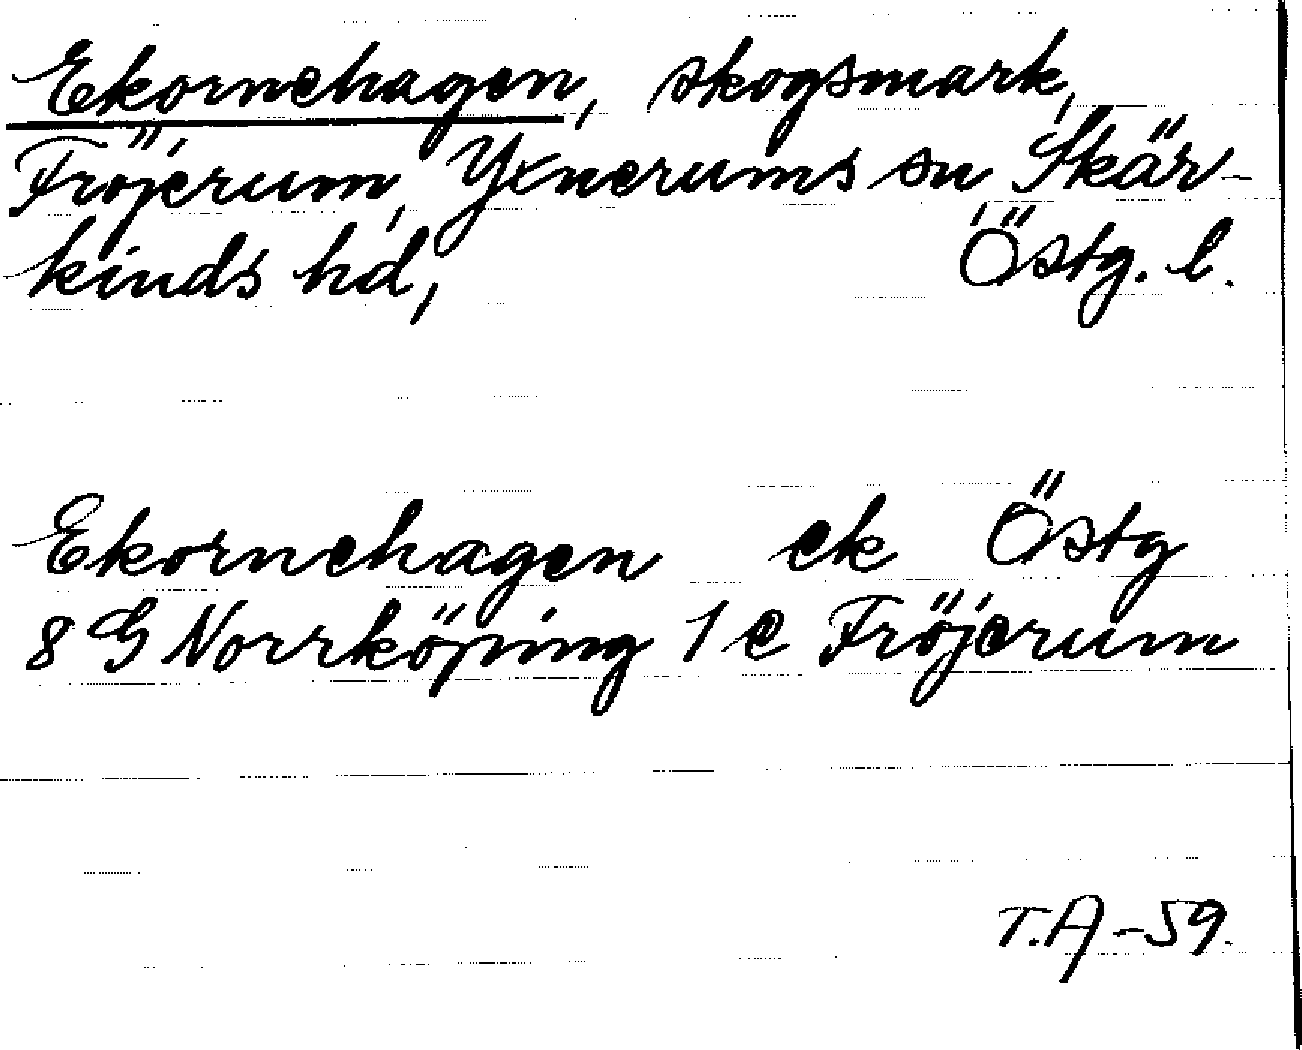 Ekornehagen, skogsmark,
Fröjerum, Yxnerums sn, Skär-
kinds hd, Östg. l.
Ekornehagen ek Östg
8 G Norrköping 1 e Fröjerum
T.A-59.